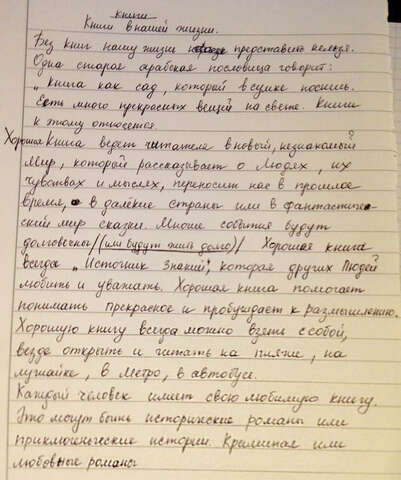 книги
Книги в нашей жизни.
Без книг нашу жизнь представить нельзя.
Одна старая арабская пословица говорит:
„ книга как сад, которой в сумке носишь.
Есть много прекрасных вещей на свете. Книги
к этому относятся.
Хорошая Книга ведет читателя в новый, незнакомый
мир, которой рассказывает о людях, их
чувствах и мыслях, переносит нас в прошлое
время, в далёкие страны или в фантастиче-
ский мир сказки. Многие события будут
долговечны / (или будут жить долго) / Хорошая книга
всегда „Источник знаний", которая других людей
любить и уважать. Хорошая книга помогает
понимать прекрасное и пробуждает к размышлению.
Хорошую книгу всегда можно взять с собой,
везде открыть и читать на пляже, на
лужайке, в метро, в автобусе.
Каждый человек имеет свою любимую книгу.
Это могут быть исторические романы или
приключенческие истории. Криминал или
любовные романы